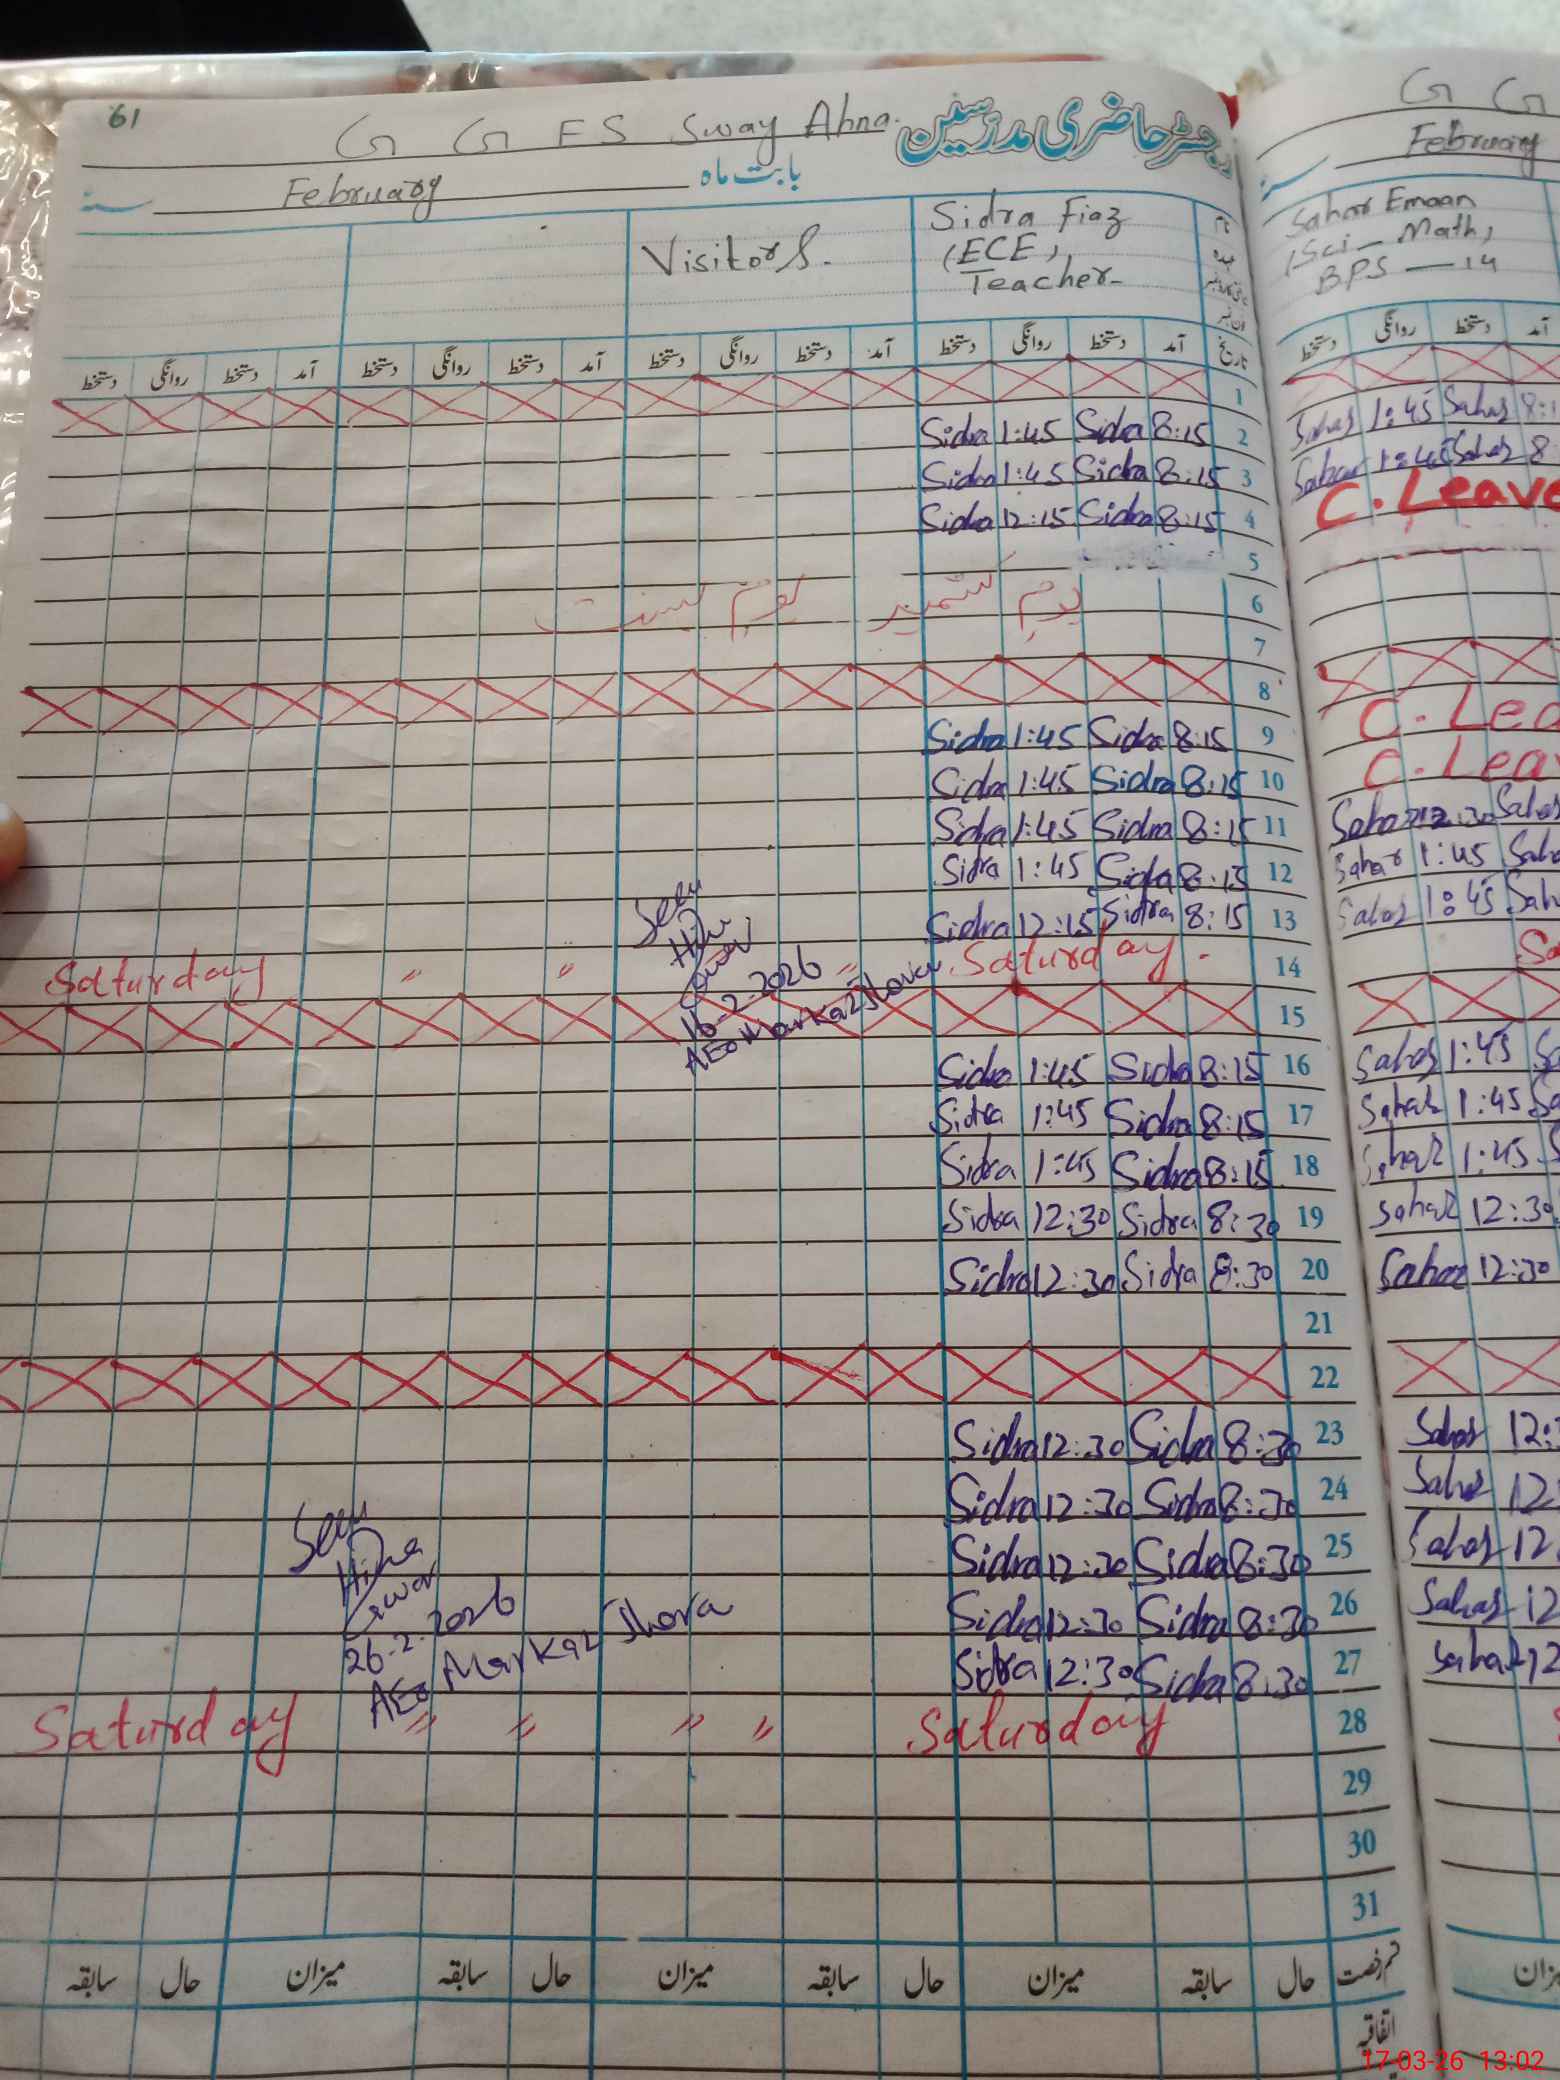 61
G G E S Sway Ahna.
رجسٹر حاضری مدرسین
February
بابت ماہ
سنہ
Visitors.
Sidra Fiaz
(ECE)
Teacher-
نام
عہدہ
دستخط روانگی دستخط آمد دستخط روانگی دستخط آمد دستخط روانگی دستخط آمد دستخط روانگی دستخط آمد تاریخ
1
Sidra 1:45 Sidra 8:15 2
Sidra 1:45 Sidra 8:15 3
Sidra 12:15 Sidra 8:15 4
5
یوم کشمیر یوم بسنت 6
7
8
Sidra 1:45 Sidra 8:15 9
Sidra 1:45 Sidra 8:15 10
Sidra 1:45 Sidra 8:15 11
Sidra 1:45 Sidra 8:15 12
Sidra 12:15 Sidra 8:15 13
Saturday " " " Saturday - 14
Seen
Hina
16-2-2026
AEO Markaz Jhora
15
Sidra 1:45 Sidra 8:15 16
Sidra 1:45 Sidra 8:15 17
Sidra 1:45 Sidra 8:15 18
Sidra 12:30 Sidra 8:30 19
Sidra 12:30 Sidra 8:30 20
21
22
Sidra 12:30 Sidra 8:30 23
Sidra 12:30 Sidra 8:30 24
Sidra 12:30 Sidra 8:30 25
Sidra 12:30 Sidra 8:30 26
Sidra 12:30 Sidra 8:30 27
Seen
Hina
26-2-2026
AEO Markaz Jhora
Saturday " " " " Saturday 28
29
30
31
سابقہ حال میزان سابقہ حال میزان سابقہ حال میزان سابقہ حال قسم رخصت
اتفاقیہ
G G
February
سنہ
Sahar Emaan
(Sci - Math)
BPS - 14
دستخط روانگی دستخط آمد
Sahar 1:45 Sahar 8:1
Sahar 1:45 Sahar 8
C. Leave
C. Lea
C. Leav
Sahar 12:30 Sahar
Sahar 1:45 Saha
Sahar 1:45 Sah
Sa
Sahar 1:45 Sa
Sahar 1:45 Sa
Sahar 1:45 S
Sahar 12:30
Sahar 12:30
Sahar 12:
Sahar 12
Sahar 12
Sahar 12
Sahar 12
17-03-26 13:02